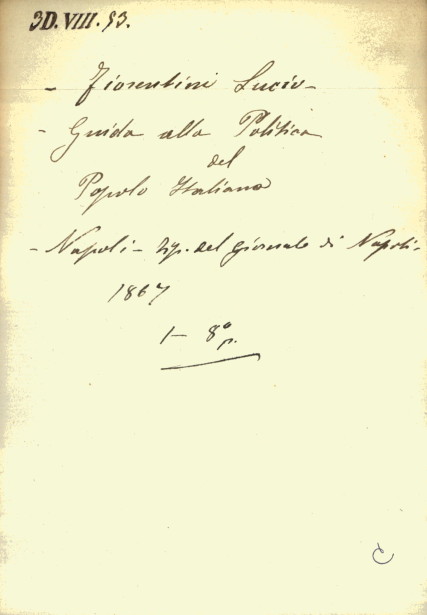 3D. VIII. 53.
- Fiorentini Lucio -
- Guida alla Politica
del
Popolo Italiano
- Napoli - tip. del giornale di Napoli -
1867
1 - 8° p.
C